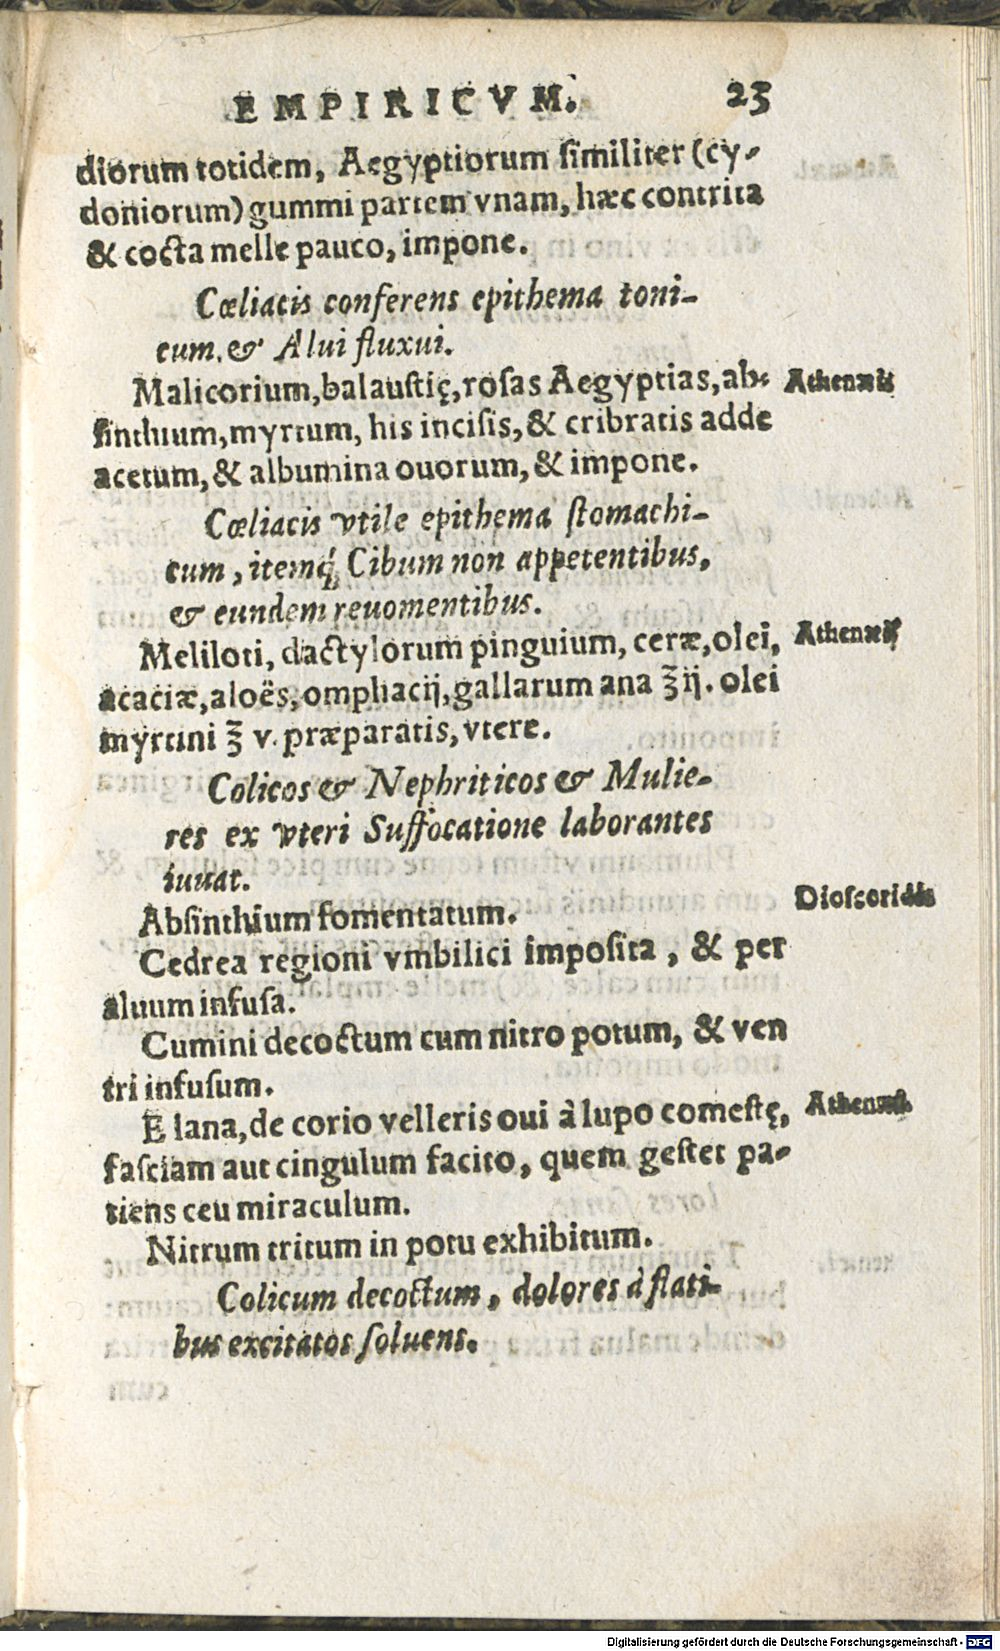 EMPIRICVM. 23
diorum totidem, Aegyptiorum similiter (cy-
doniorum) gummi partem vnam, hæc contrita
& cocta melle pauco, impone.
Cœliacis conferens epithema toni-
cum, & Alui fluxui.
Malicorium, balaustię, rosas Aegyptias, ab- Athenæus
sinthium, myrtum, his incisis, & cribratis adde
acetum, & albumina ouorum, & impone.
Cœliacis vtile epithema stomachi-
cum, itemq́; Cibum non appetentibus,
& eundem reuomentibus.
Meliloti, dactylorum pinguium, ceræ, olei, Athenæus
acaciæ, aloës, omphacij, gallarum ana ʒ ij. olei
myrtini ʒ v. præparatis, vtere.
Colicos & Nephriticos & Mulie-
res ex vteri Suffocatione laborantes
iuuat.
Absinthium fomentatum. Dioscorides
Cedrea regioni vmbilici imposita, & per
aluum infusa.
Cumini decoctum cum nitro potum, & ven
tri infusum.
E lana, de corio velleris oui à lupo comestę,
fasciam aut cingulum facito, quem gestet pa-
tiens ceu miraculum.
Nitrum tritum in potu exhibitum.
Colicum decoctum, dolores à flati-
bus excitatos soluens.
Digitalisierung gefördert durch die Deutsche Forschungsgemeinschaft - DFG